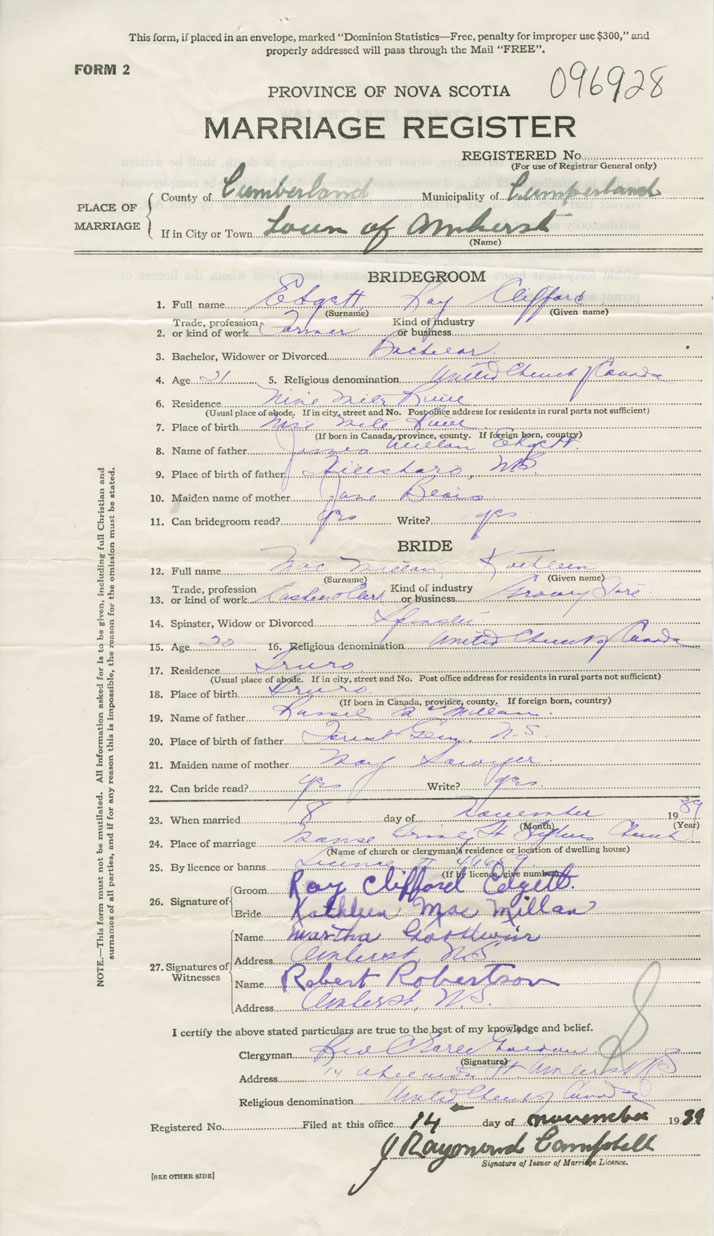 This form, if placed in an envelope, marked “Dominion Statistics—Free, penalty for improper use $300,” and
properly addressed will pass through the Mail “FREE”.
FORM 2
096928
PROVINCE OF NOVA SCOTIA
MARRIAGE REGISTER
REGISTERED No
(For use of Registrar General only)
PLACE OF MARRIAGE
County of Cumberland Municipality of Cumberland
If in City or Town Town of Amherst
(Name)
BRIDEGROOM
1. Full name Edgett, Ray Clifford
(Surname) (Given name)
2. Trade, profession or kind of work Farmer Kind of industry or business
3. Bachelor, Widower or Divorced Bachelor
4. Age 21 5. Religious denomination United Church of Canada
6. Residence Nine Mile River
(Usual place of abode. If in city, street and No. Post office address for residents in rural parts not sufficient)
7. Place of birth Nine Mile River
(If born in Canada, province, county. If foreign born, country)
8. Name of father James Millan Edgett
9. Place of birth of father Hillsboro, N.B.
10. Maiden name of mother Jane
11. Can bridegroom read? yes Write? yes
BRIDE
12. Full name Mac Millan, Kathleen
(Surname) (Given name)
13. Trade, profession or kind of work Kind of industry or business Grocery Store
14. Spinster, Widow or Divorced Spinster
15. Age 20 16. Religious denomination United Church of Canada
17. Residence Truro
(Usual place of abode. If in city, street and No. Post office address for residents in rural parts not sufficient)
18. Place of birth Truro
(If born in Canada, province, county. If foreign born, country)
19. Name of father McMillan
20. Place of birth of father Forest Glen, N.S.
21. Maiden name of mother Mary Sawyer
22. Can bride read? yes Write? yes
23. When married 8 day of November 1939
(Month) (Year)
24. Place of marriage Manse St Stephens Church
(Name of church or clergyman's residence or location of dwelling house)
25. By licence or banns Licence
(If by licence give number)
26. Signature of
Groom Ray Clifford Edgett
Bride Kathleen Mac Millan
27. Signatures of Witnesses
Name Martha Goodwin
Address Amherst, N.S.
Name Robert Robertson
Address Amherst, N.S.
I certify the above stated particulars are true to the best of my knowledge and belief.
Clergyman Rev
(Signature)
Address 14 St Amherst N.S
Religious denomination United Church of Canada
Registered No. Filed at this office 14 day of november 1939
J Raymond Campbell
Signature of Issuer of Marriage Licence.
[SEE OTHER SIDE]
NOTE.—This form must not be mutilated. All information asked for is to be given, including full Christian and
surnames of all parties, and if for any reason this is impossible, the reason for the omission must be stated.